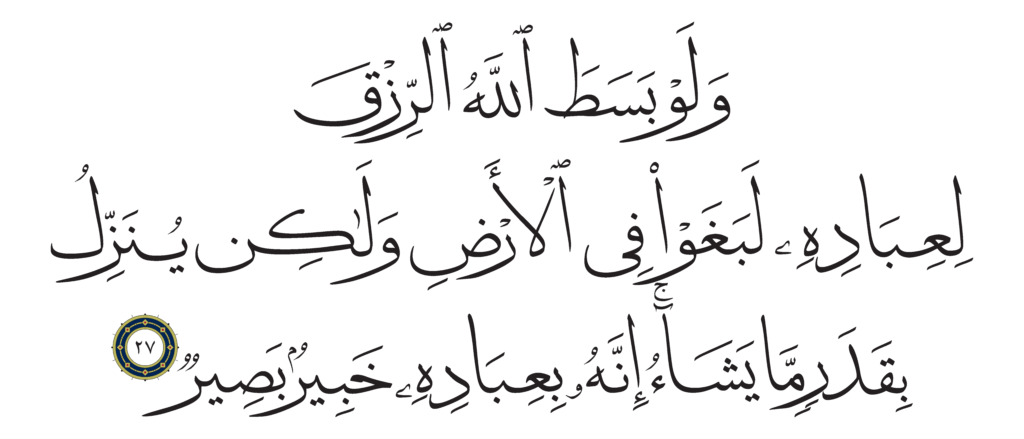 وَلَوْ بَسَطَ ٱللَّهُ ٱلرِّزْقَ
لِعِبَادِهِۦ لَبَغَوْا۟ فِى ٱلْأَرْضِ وَلَـٰكِن يُنَزِّلُ
بِقَدَرٍ مَّا يَشَآءُ ۚ إِنَّهُۥ بِعِبَادِهِۦ خَبِيرٌۢ بَصِيرٌ ٢٧